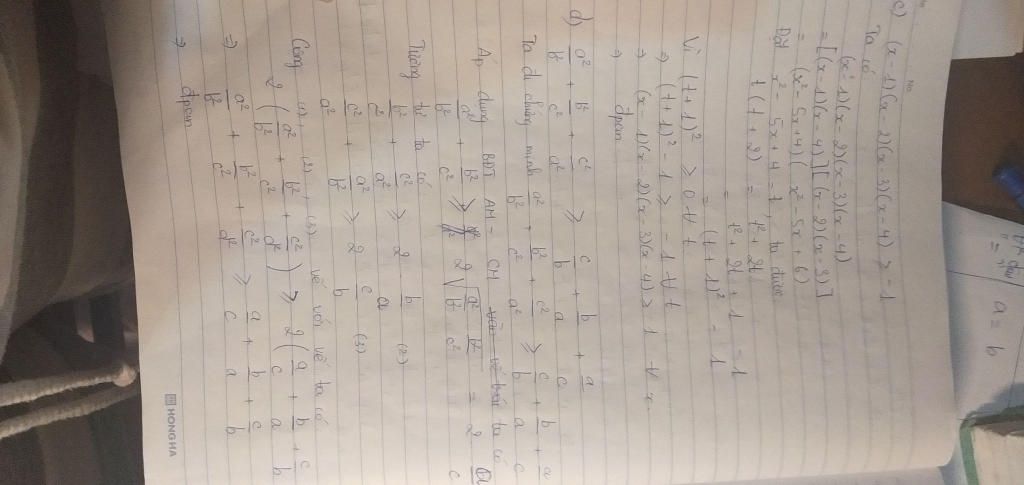 No
c) (x-1)(x-2)(x-3)(x-4) ≥ -1
Ta có
(x-1)(x-2)(x-3)(x-4)
= [(x-1)(x-4)][(x-2)(x-3)]
= (x²-5x+4)(x²-5x+6)
Đặt x²-5x+4 = t, ta được
t(t+2) = t²+2t
= t²+2t+1-1
= (t+1)²-1
Vì (t+1)² ≥ 0 ∀ t
⇒ (t+1)²-1 ≥ -1 ∀ t
⇒ (x-1)(x-2)(x-3)(x-4) ≥ 1 ∀ x
⇒ đpcm
d) a²/b² + b²/c² + c²/a² ≥ c/b + b/a + a/c
Ta đi chứng minh a²/b² + b²/c² + c²/a² ≥ c/b + b/a + a/c
Áp dụng BĐT AM - GM ta có
a²/b² + b²/c² ≥ 2√(a²/b² b²/c²) = 2 a/c
Tương tự ta có
b²/c² + c²/a² ≥ 2 b/a (2)
c²/a² + a²/b² ≥ 2 c/b (3)
Cộng (1), (2), (3) vế với vế ta có
2(a²/b² + b²/c² + c²/a²) ≥ 2(a/c + b/a + c/b)
⇒ a²/b² + b²/c² + c²/a² ≥ a/c + b/a + c/b
⇒ đpcm
HONG HA
a = b